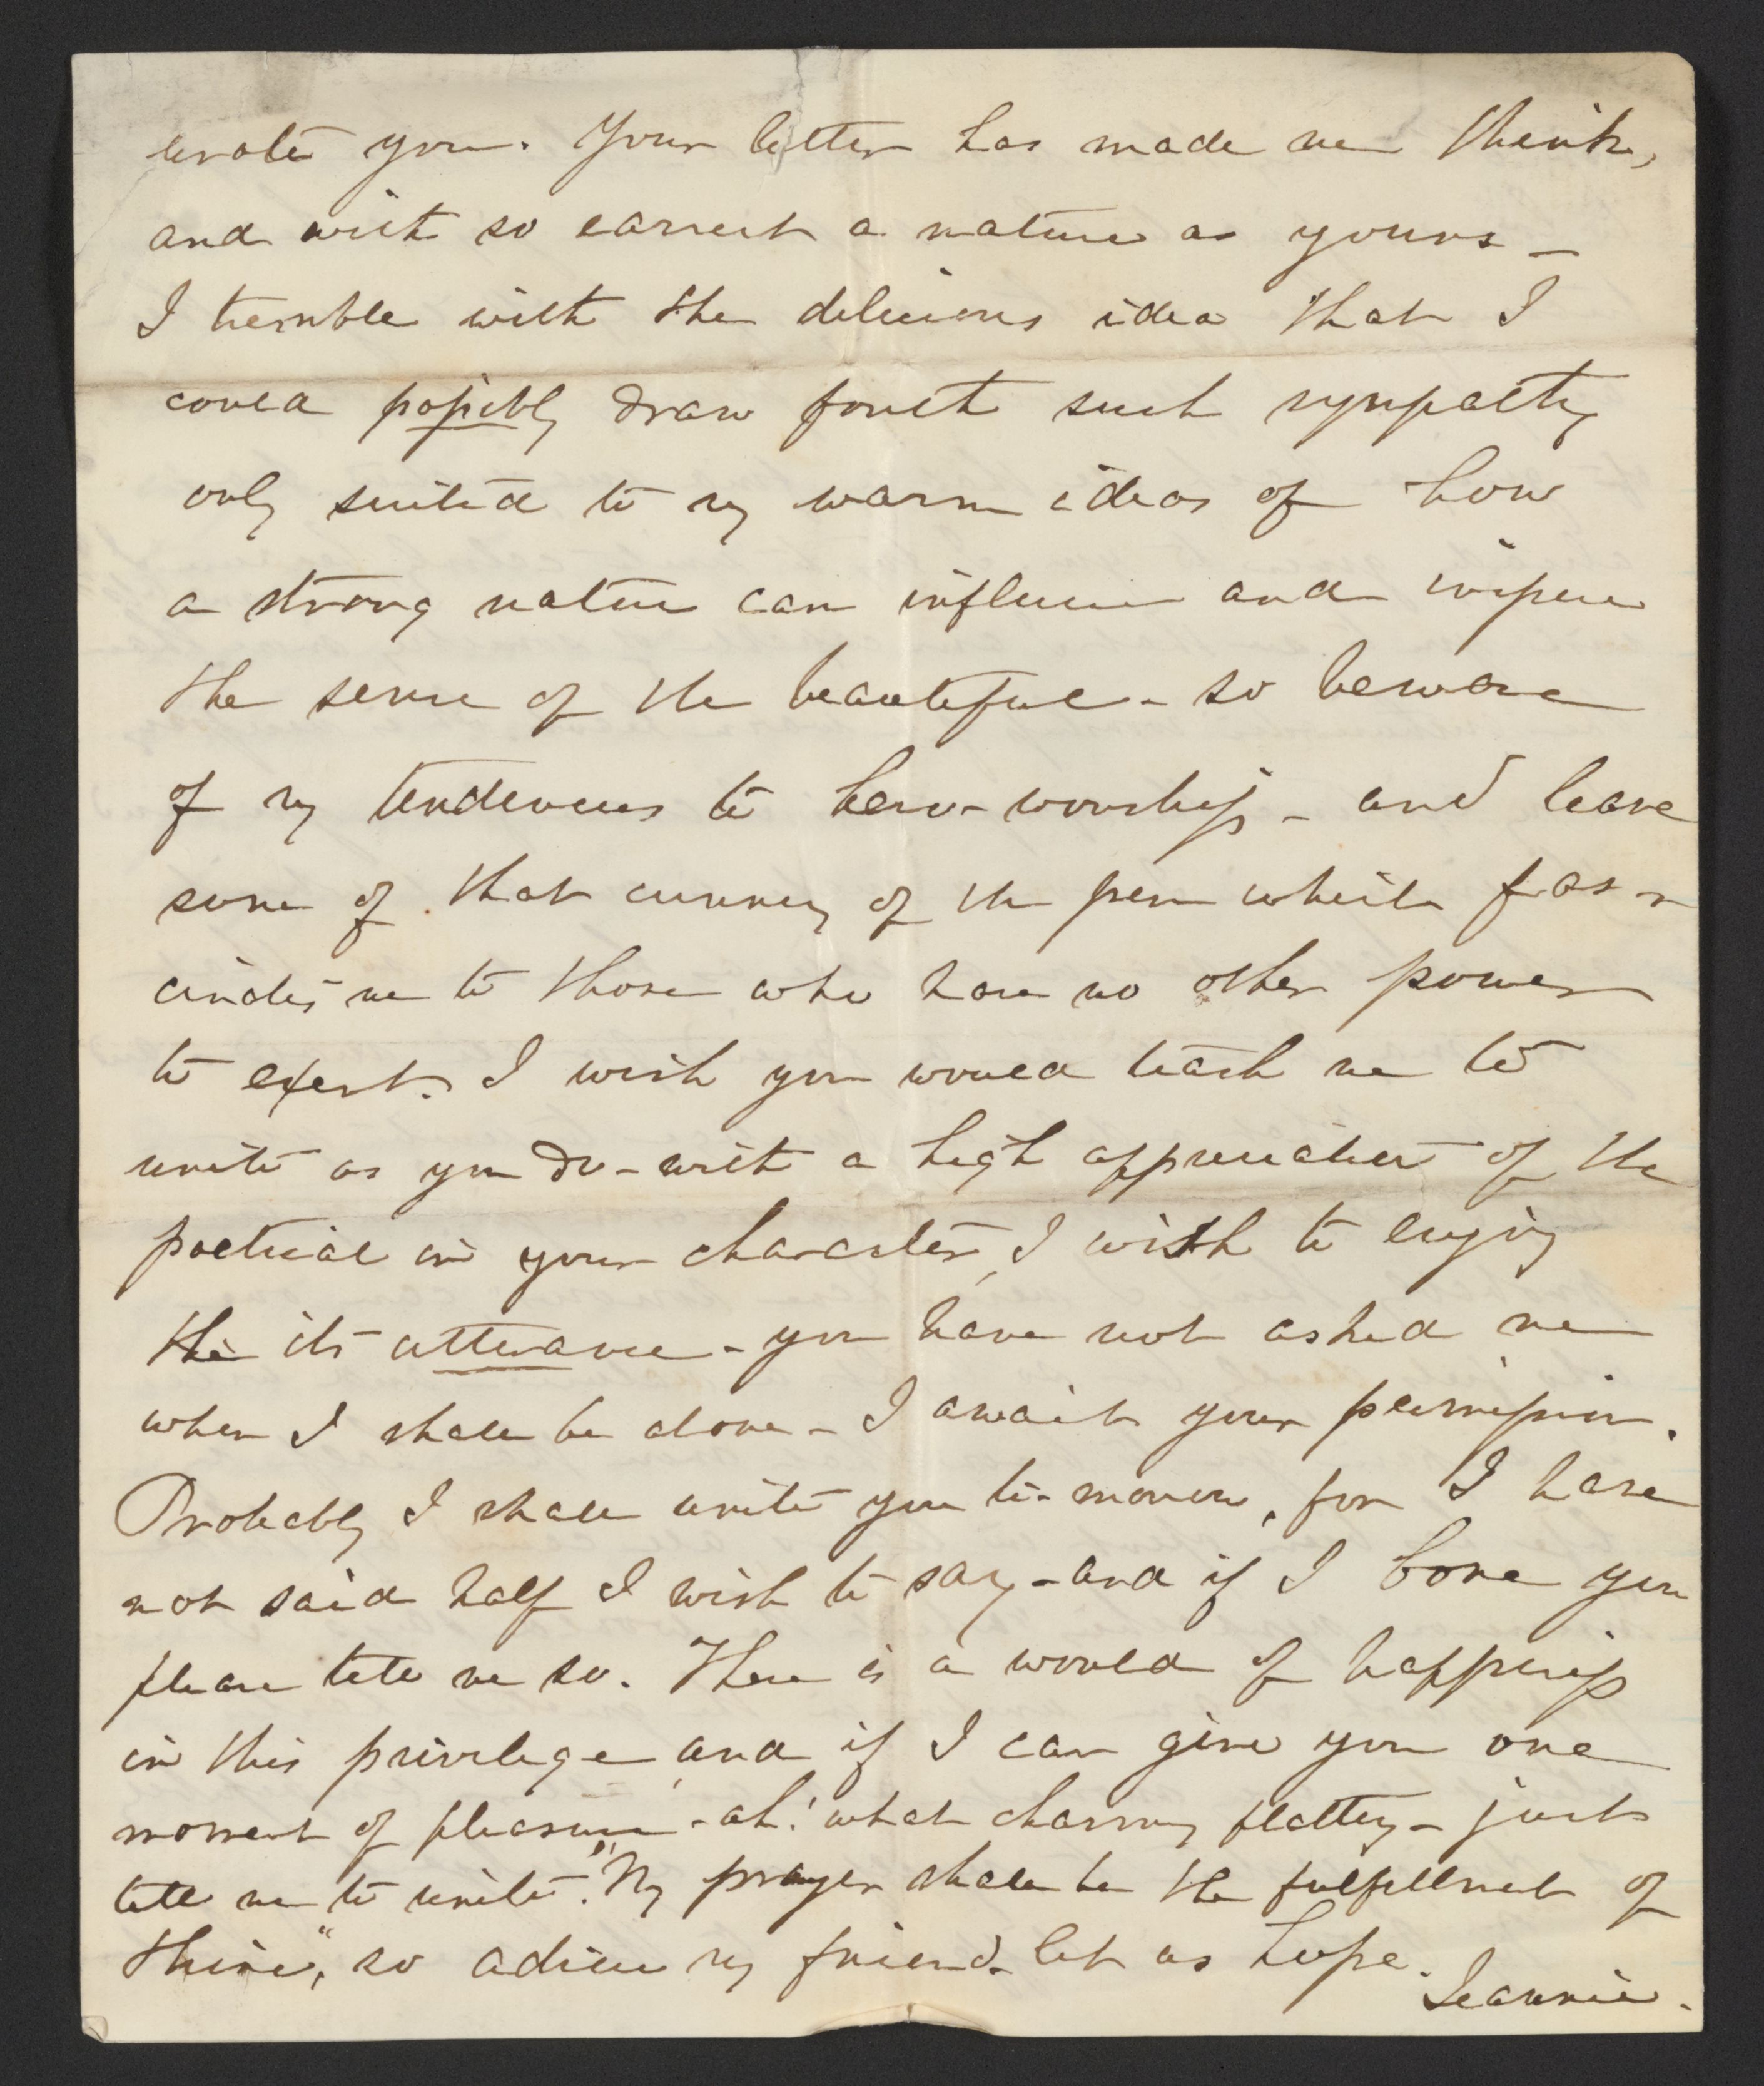 wrote you. Your letter has made me think,
and with so earnest a nature as yours –
I tremble with the delicious idea that I
could possibly draw forth such sympathy
only suited to my warm ideas of how
a strong nature can influence and inspire
the sense of the beautiful – so beware
of my tendencies to hero-worship – and leave
some of that cunning of the pen which fas-
cinates me to those who have no other power
to exert. I wish you would teach me to
write as you do – with a high appreciation of the
poetical in your character, I wish to enjoy
the its utterance – you have not asked me
when I shall be alone – I await your permission.
Probably I shall write you to-morrow, for I have
not said half I wish to say – and if I bore you
please tell me so. There is a world of happiness
in this privilege, and if I can give you one
moment of pleasure – ah! what charming flattery – just
tell me to write. "My prayer shall be the fulfillment of
thine", so adieu my friend – let us hope.
Jeannie.